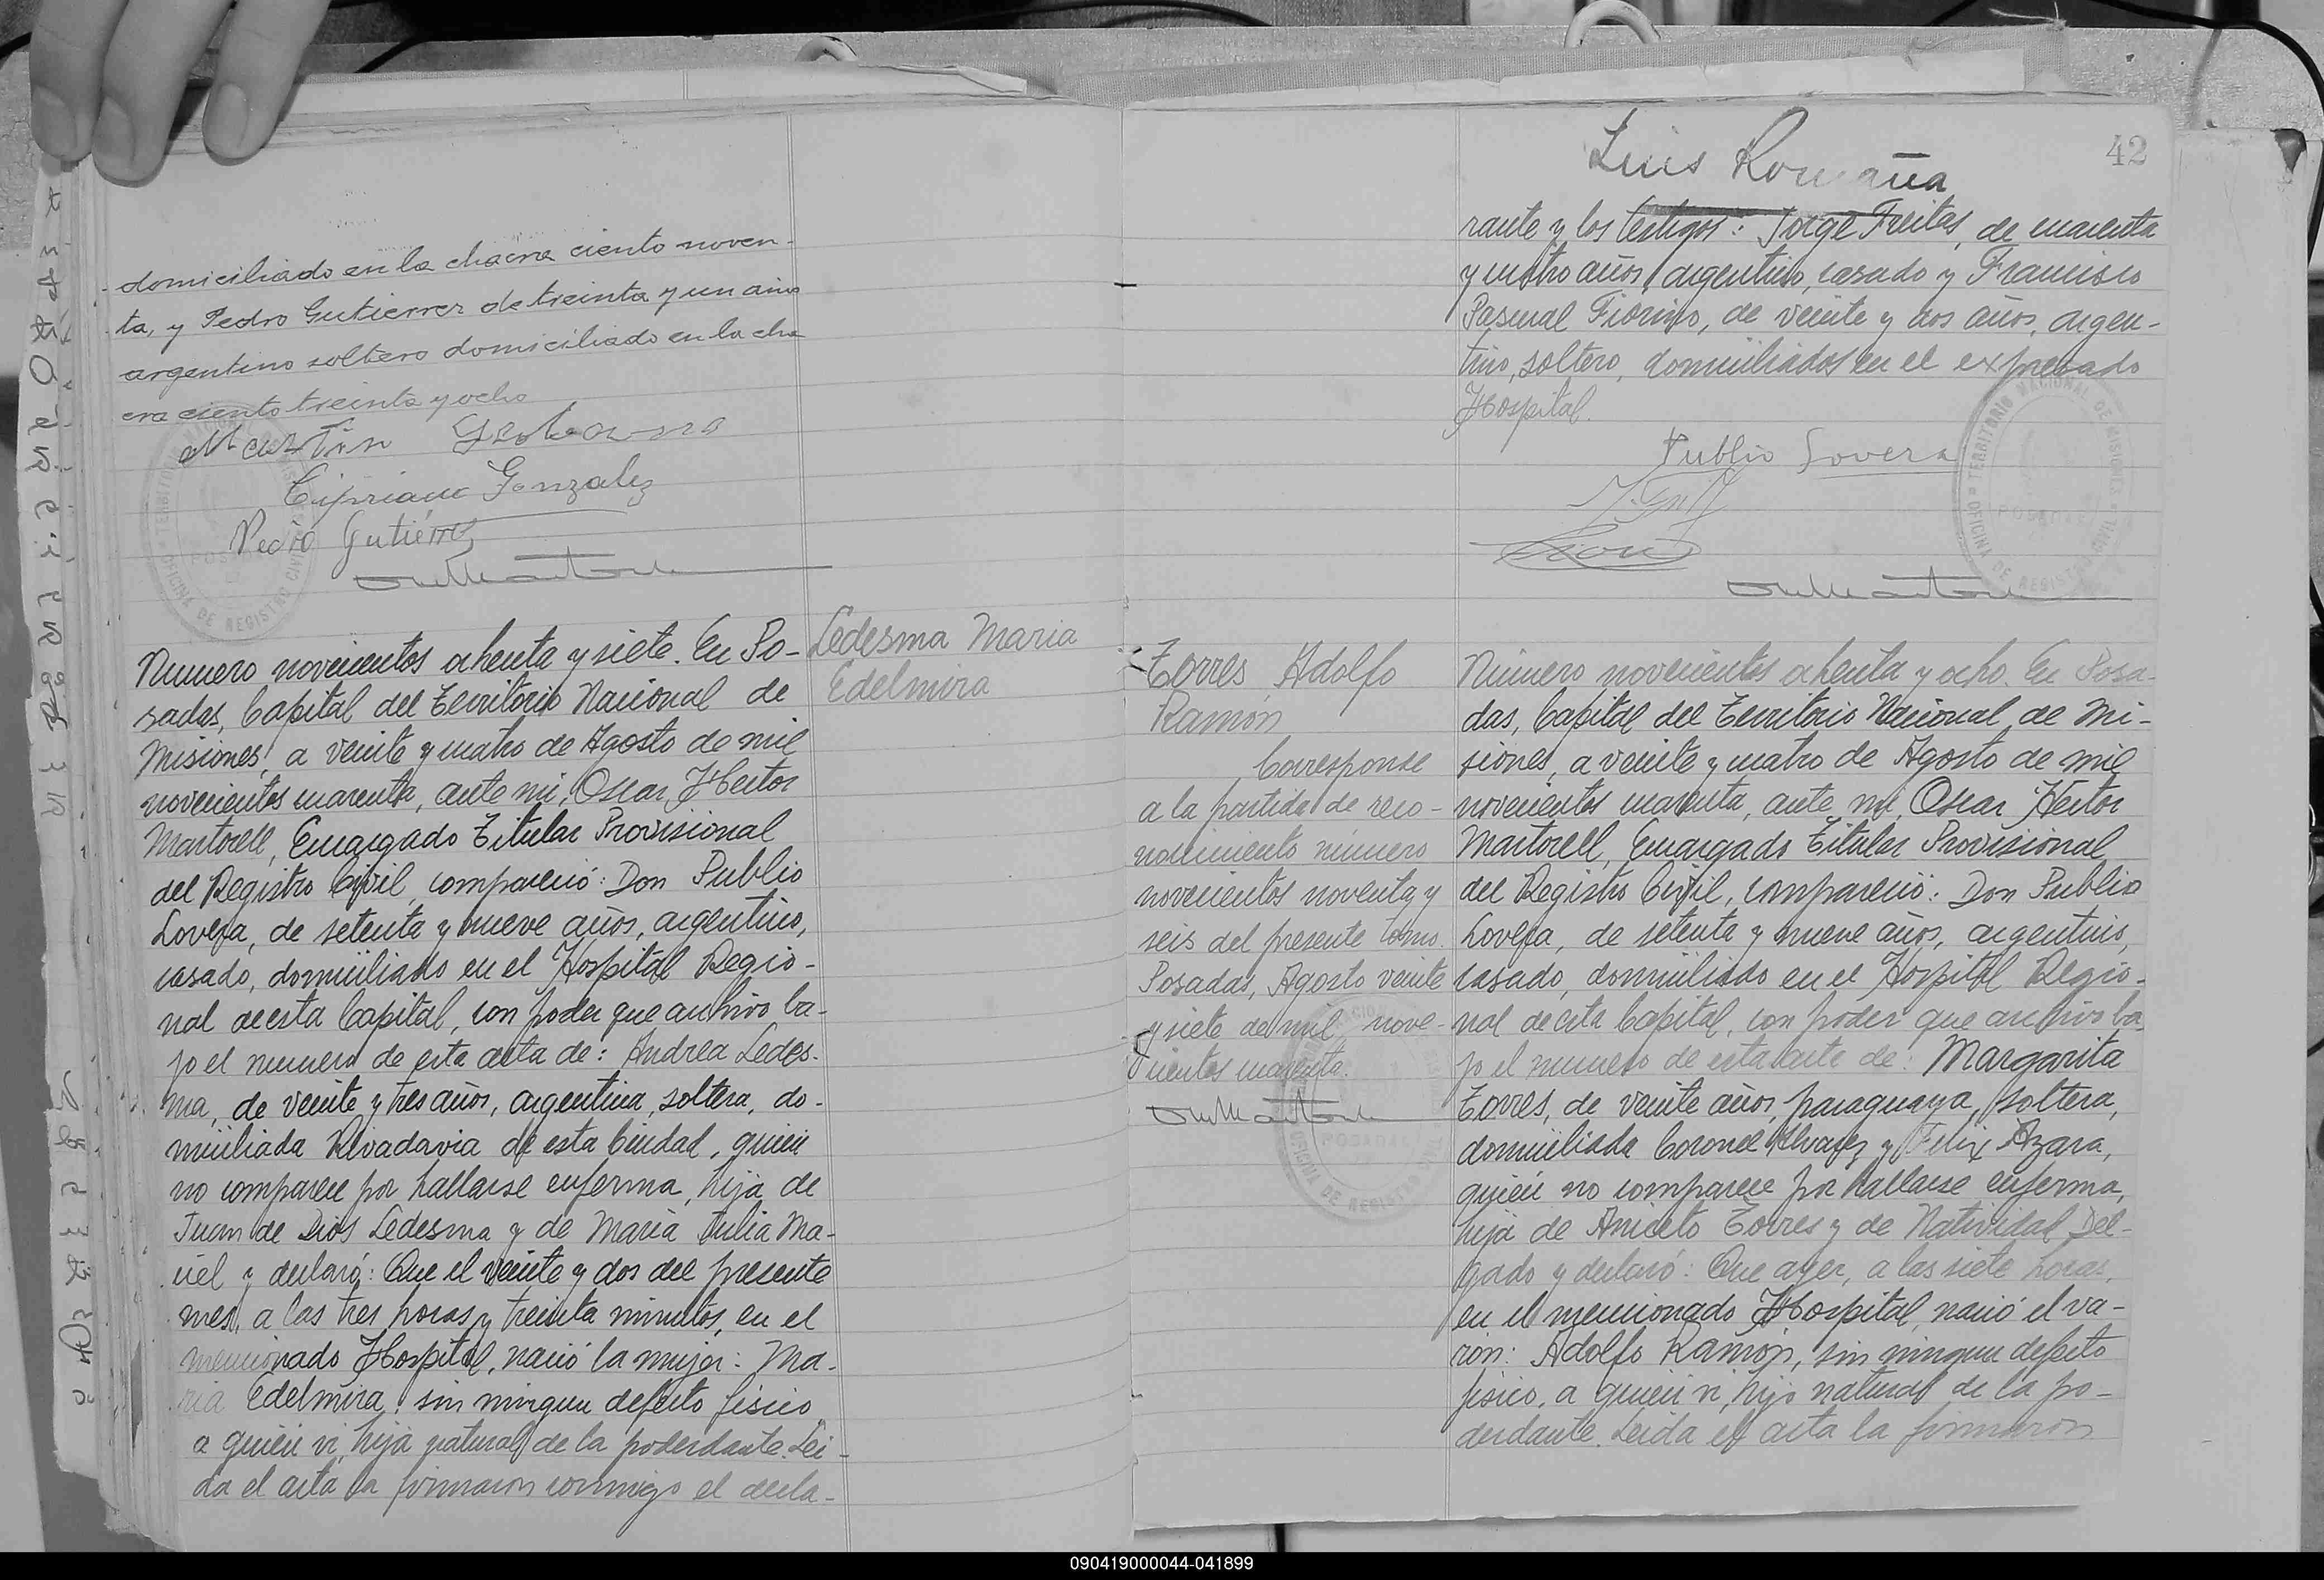 domiciliado en la chacra ciento noven-
ta, y Pedro Gutierrez de treinta y un año
argentino soltero domiciliado en la cha
cra ciento treinta y ocho
Martin
Cipriano Gonzalez
Pedro Gutiérrez
Numero novecientos ochenta y siete. En Po-
sadas, Capital del Territorio Nacional de
Misiones, a veinte y cuatro de Agosto de mil
novecientos cuarenta, ante mi, Oscar Hector
Martorell, Encargado Titular Provisional
del Registro Civil, compareció: Don Publio
Lovera, de setenta y nueve años, argentino,
casado, domiciliado en el Hospital Regio-
nal de esta Capital, con poder que archivo ba-
jo el numero de esta acta de: Andrea Ledes-
ma, de veinte y tres años, argentina, soltera, do-
miciliada Rivadavia de esta Ciudad, quien
no comparece por hallarse enferma, hija de
Juan de Dios Ledesma y de Maria Julia Ma-
ciel y declaró: Que el veinte y dos del presente
mes, a las tres horas y treinta minutos, en el
mencionado Hospital, nació la mujer: Ma-
ria Edelmira, sin ningun defecto fisico,
a quien vi, hija natural de la poderdante. Lei-
da el acta la firmaron conmigo el decla-
Ledesma Maria
Edelmira
42
Luis Romaña
rante y los testigos: Jorge Freitas, de cuarenta
y cuatro años, argentino, casado y Francisco
Pascual Fiorino, de veinte y dos años, argen-
tino, soltero, domiciliados en el expresado
Hospital.
Publio Lovera
TERRITORIO NACIONAL DE MISIONES
OFICINA DE REGISTRO CIVIL
POSADAS
Torres Adolfo
Ramón
Corresponde
a la partida de reco-
nocimiento número
novecientos noventa y
seis del presente tomo.
Posadas, Agosto veinte
y siete de mil nove-
cientos cuarenta.
Número novecientos ochenta y ocho. En Posa-
das, Capital del Territorio Nacional de Mi-
siones, a veinte y cuatro de Agosto de mil
novecientos cuarenta, ante mi, Oscar Hector
Martorell, Encargado Titular Provisional
del Registro Civil, compareció: Don Publio
Lovera, de setenta y nueve años, argentino,
casado, domiciliado en el Hospital Regio-
nal de esta Capital, con poder que archivo ba
jo el numero de esta acta de: Margarita
Torres, de veinte años, paraguaya, soltera,
domiciliada Coronel Alvarez y Felix Azara,
quien no comparece por hallarse enferma,
hija de Aniceto Torres y de Natividad Del-
gado y declaró: Que ayer, a las siete horas,
en el mencionado Hospital, nació el va-
rón: Adolfo Ramón, sin ningun defecto
fisico, a quien vi, hijo natural de la po-
derdante. Leida el acta la firmaron
090419000044-041899